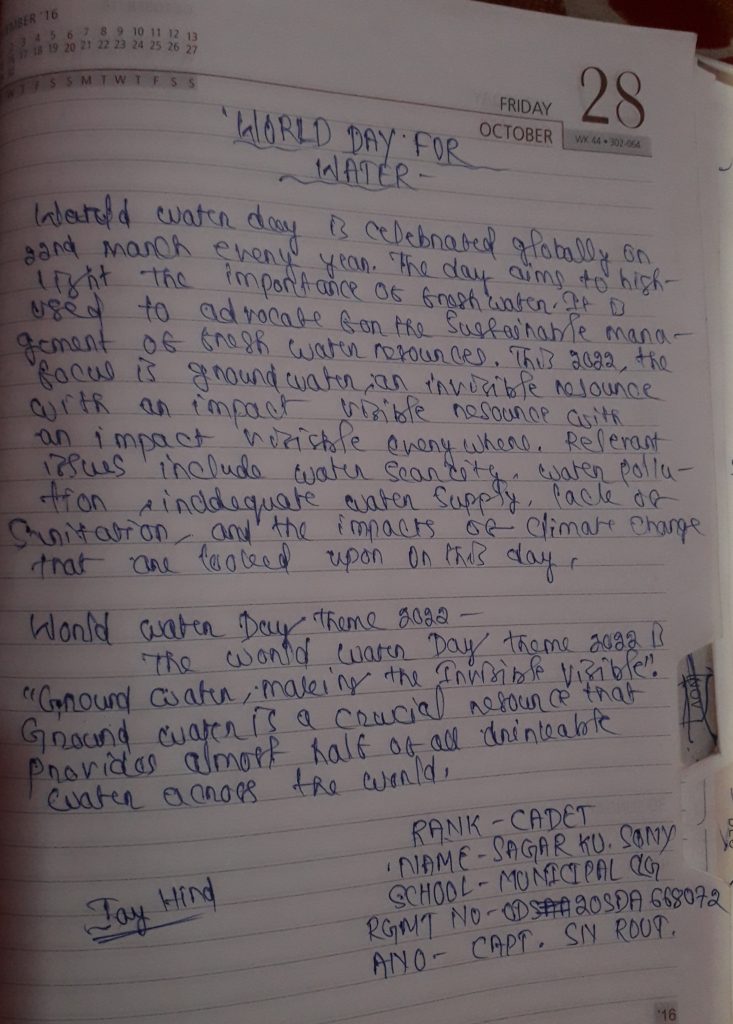 MBER '16
3 4 5 6 7 8 9 10 11 12 13
17 18 19 20 21 22 23 24 25 26 27
W T F S S M T W T F S S
FRIDAY 28
OCTOBER WK 44 • 302-064
'WORLD DAY FOR
WATER -
World water day is celebrated globally on
22nd march every year. The day aims to high-
light the importance of fresh water. It is
used to advocate for the Sustainable mana-
gement of fresh water resources. This 2022, the
focus is ground water, an invisible resource
with an impact visible resource with
an impact visible every where. Relevant
issues include water scarcity, water pollu-
tion, inadequate water supply, lack of
Sanitation, and the impacts of climate change
that are looked upon on this day.
World water Day theme 2022 -
The world water Day theme 2022 is
"Ground water, making the Invisible Visible".
Ground water is a crucial resource that
provides almost half of all drinkable
water across the world.
RANK - CADET
NAME - SAGAR KU. SAMY
SCHOOL - MUNICIPAL CLG
Jay Hind
RGMT NO - OD 20SDA 668072
ANO - CAPT. SN ROUT.
'16